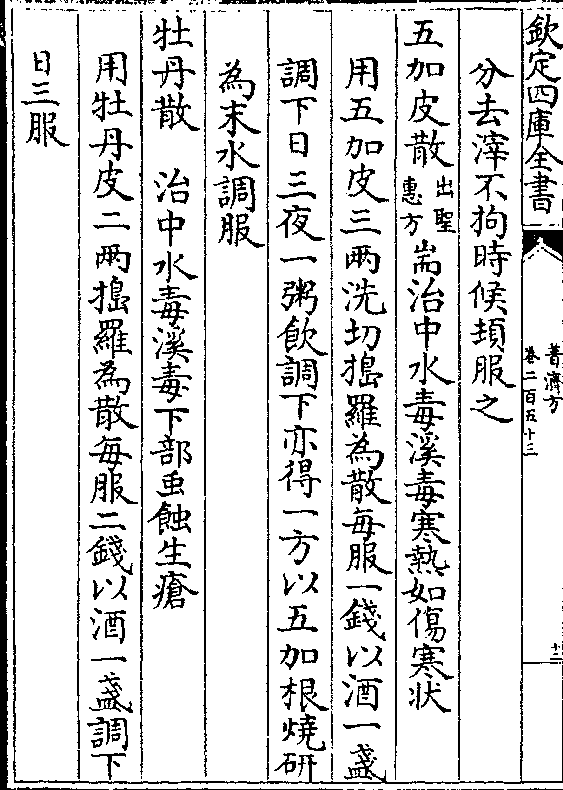 欽定四庫全書
普濟方
卷二百五十三
十二
分去滓不拘時候頓服之
五加皮散出聖惠方耑治中水毒溪毒寒熱如傷寒状
用五加皮三兩洗切搗羅為散每服一錢以酒一盞
調下日三夜一粥飲調下亦得一方以五加根燒研
為末水調服
牡丹散　治中水毒溪毒下部䖝蝕生瘡
用牡丹皮二兩搗羅為散每服二錢以酒一盞調下
日三服